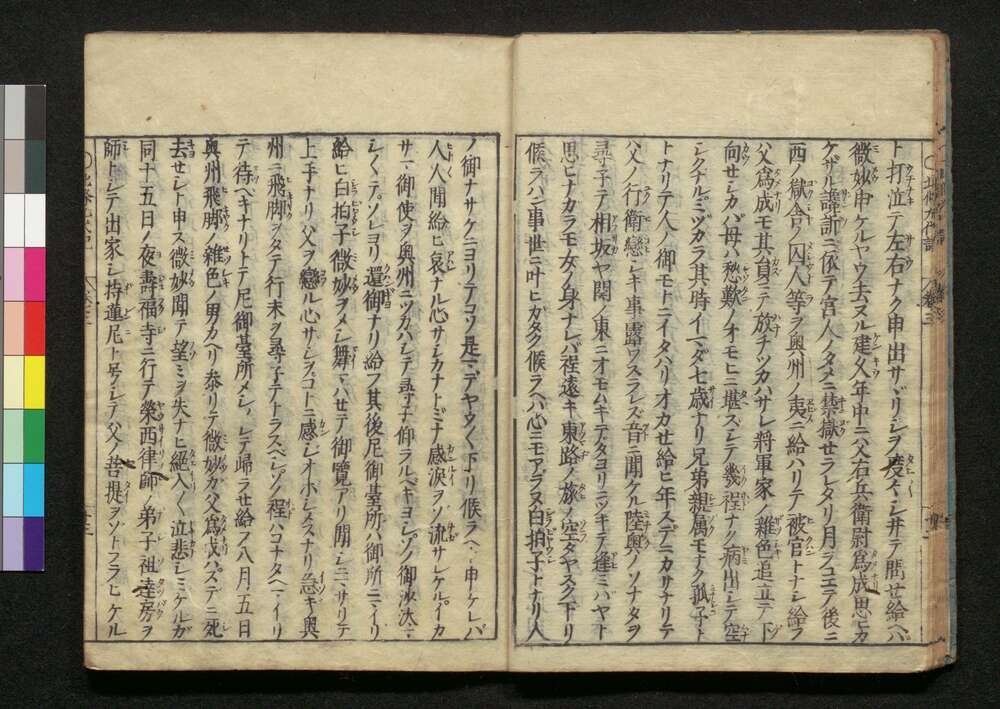 ト打泣テ左右ナク申出サヾリシヲ度々シ井テ問せ給ヘバ
微妙申ケルヤウ去ヌル建久年中ニ父右兵衛尉為成思ヒカ
ケザル讒訴ニ依テ宮人ノタメニ禁獄せラレタリ月ヲコエテノ後ニ
西ノ獄舎ノ囚人等ヲ奥州ノ夷ニ給ハリテ被官トナシ給フ
父為成モ其員ニテ放チツカハサレ将軍家ノ雑色追立テ下
向せシカバ母ハ愁歎ノオモヒニ堪ズシテ幾程ナク病出シテ空
シクナルミヅカラ其時イマダ七歳ナリ兄弟親属モナク孤子ト
トナリテ人ノ御モトニイタハリオカせ給ヒ年スデニカサナリテ
父ノ行衛戀シキ事露ワスラレズ音ニ聞ケル陸奥ノソナタヲ
尋子テ相坂ヤ関ノ東ニオモムキテタヨリニツキテ逢ミハヤト
思ヒナカラモ女ノ身ナレバ程遠キ東路ノ旅ノ空タヤスク下リ
候ラハン事世ニ叶ヒガタク候ラヘバ心ニモアラヌ白拍子トナリ人
ノ御ナサケニヨリテコソ是マデヤウ〱下リ候ラヘト申ケレバ
人人聞給ヒ哀ナル心サシカナトミナ感涙ヲソ流サレケルイカ
サマ御使ヲ奥州ニツカハシテ尋子仰ラルベキヨシノ御沙汰マ
シ〱テソレヨリ還御ナリ給フ其後尼御䑓所ハ御所ニマイリ
給ヒ白拍子微妙ヲメシ舞マハせテ御覧アリ聞シニマサリテ
上手ナリ父ヲ戀ル心サシヲコトニ感シオホシメスナリ急キ奥
州ニ飛脚ヲタテ行末ヲ尋子テトラスベシソノ程ハコナタヘマイリ
テ待ベキナリトテ尼御䑓所メシツレテ帰ラせ給フ八月五日
奥州飛脚ノ雑色ノ男カヘリ参リテ微妙カ父為成ハスデニ死
去せシト申ス微妙聞テ望ミヲ失ナヒ絶入〱泣悲シミケルガ
同十五日ノ夜壽福寺ニ行テ榮西律師ノ弟子祖達房ヲ
師トシテ出家シ持蓮尼ト号シテ父ノ菩提ヲソトフラヒケル